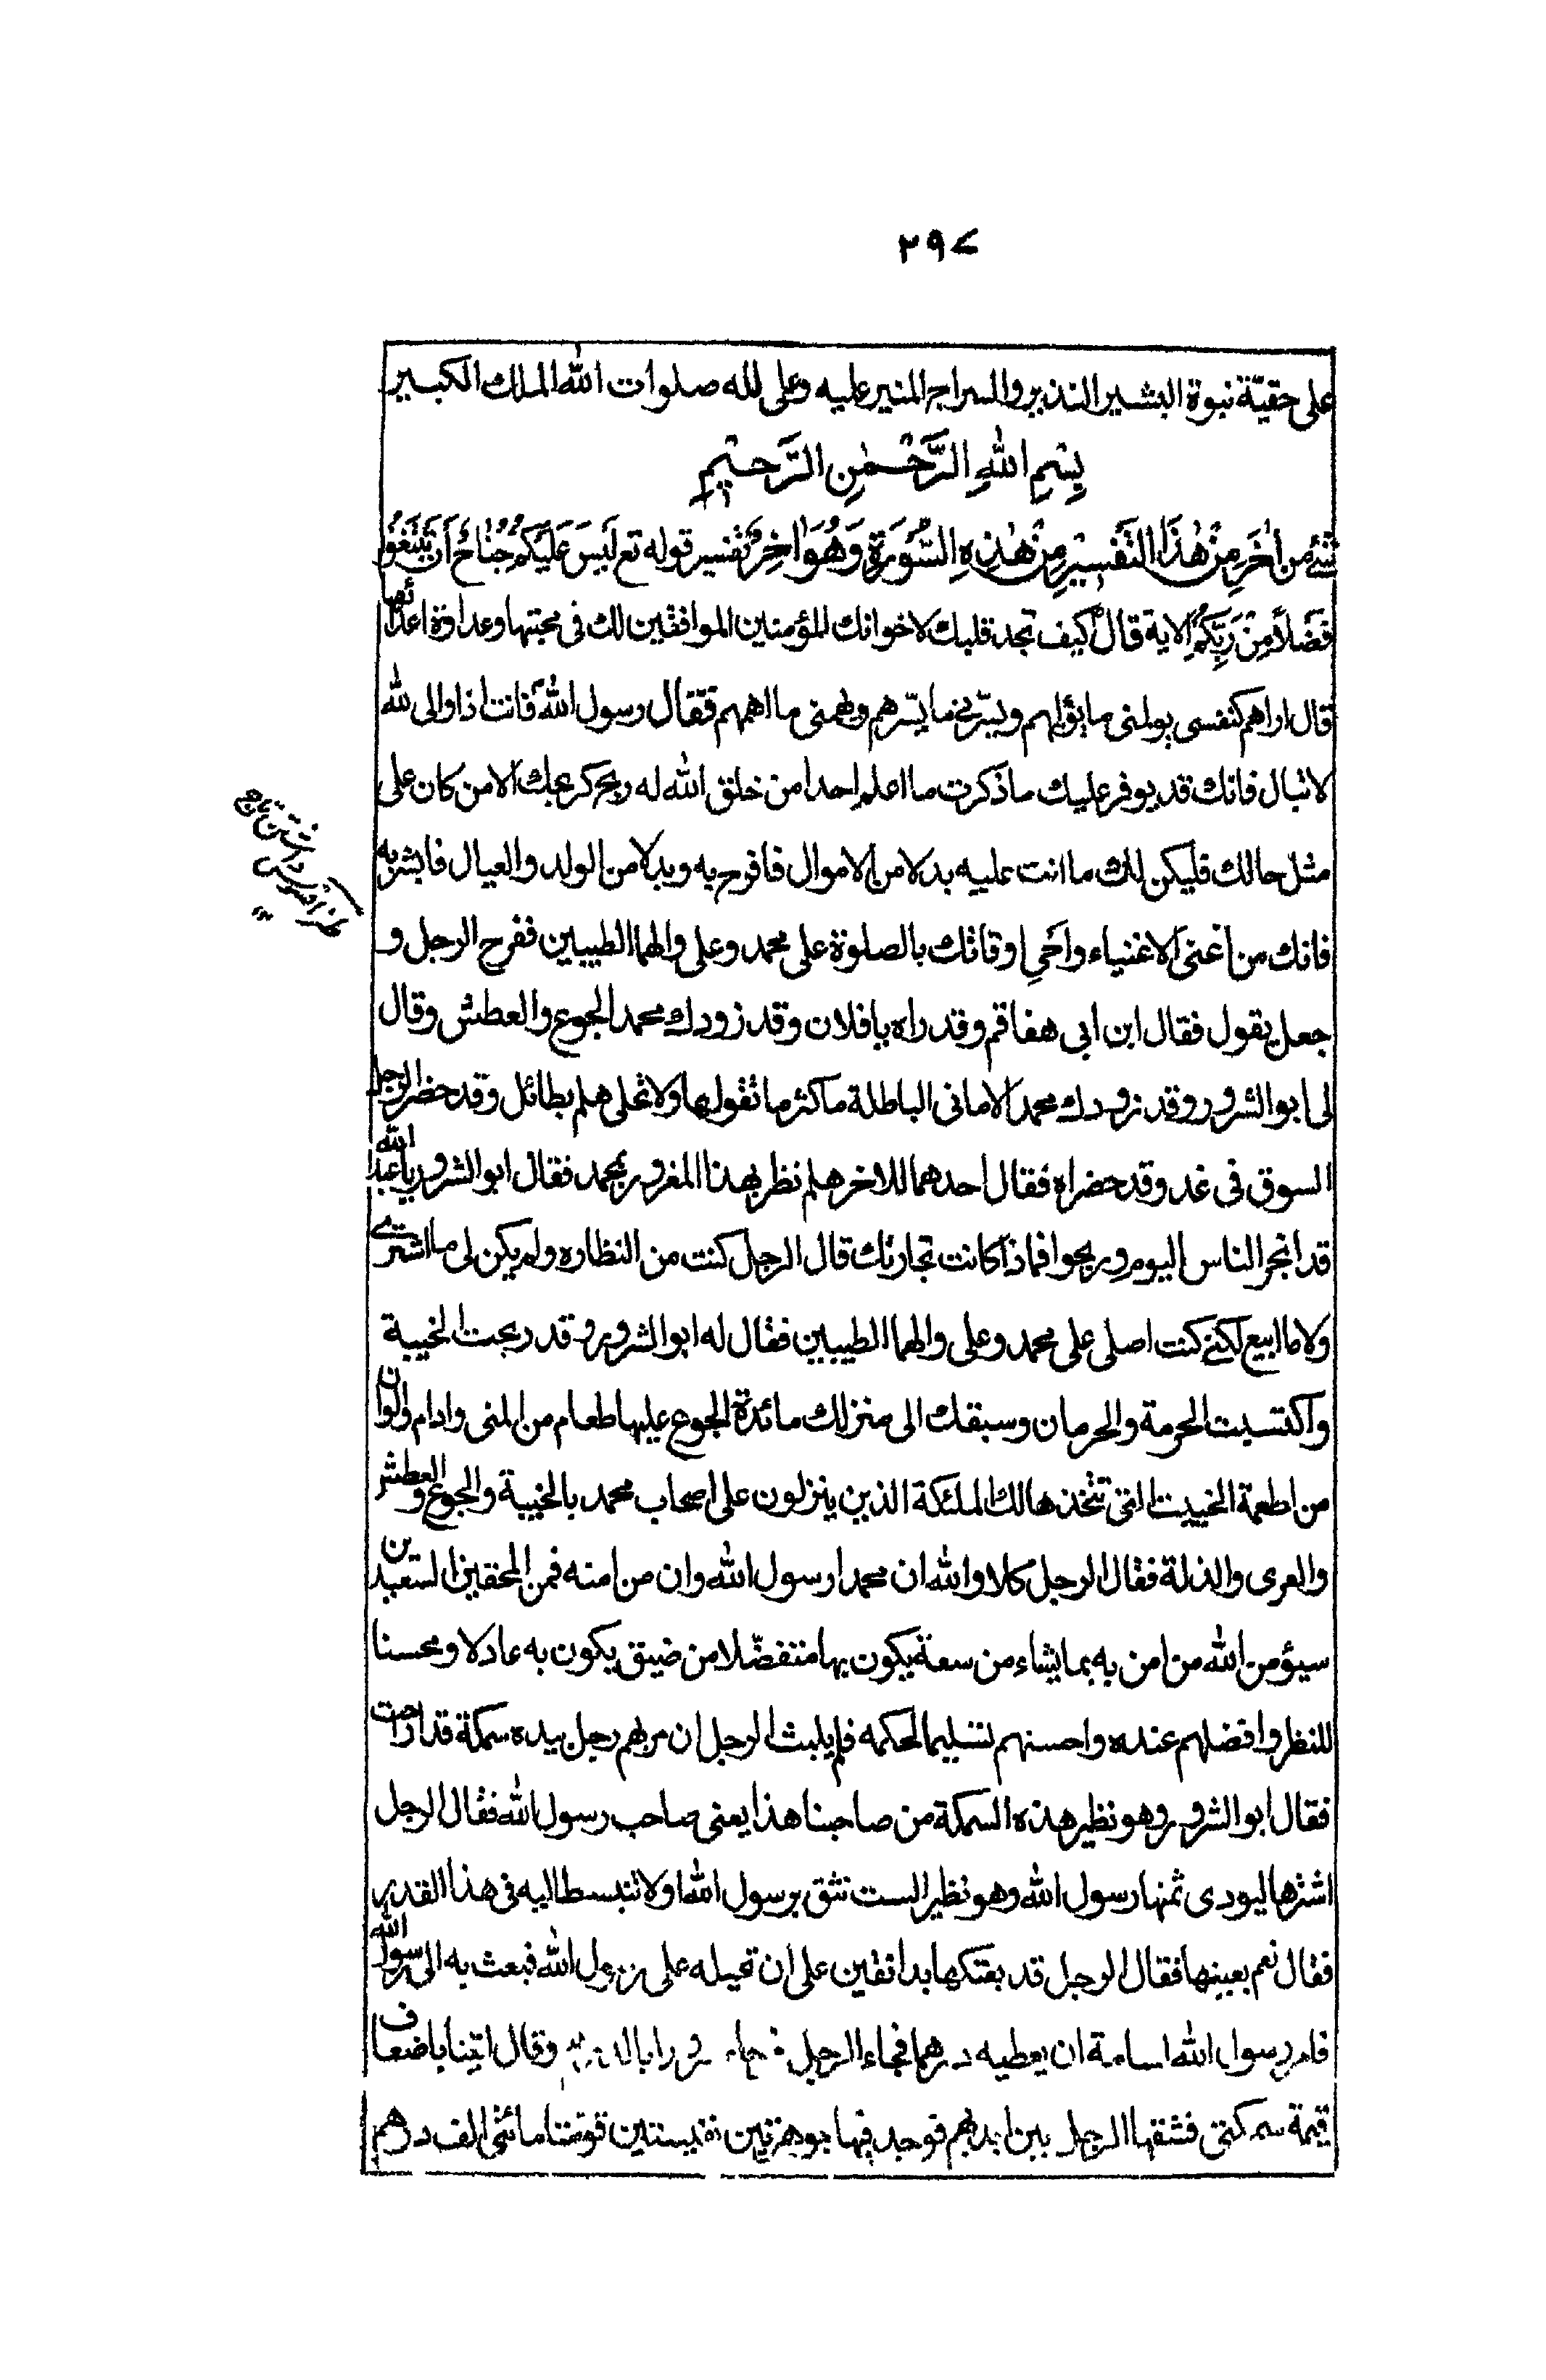 ٢٩٧
على حقيّة نبوة البشير النذير والسراج المنير عليه وعلى لله صلوات الله الملك الكبير
بِسْمِ اللهِ الرَّحْمٰنِ الرَّحيمِ
شئ من اٰخَرِ مِنْ هٰذَا التَّفْسيرِ مِنْ هٰذِهِ السُّورَةِ وَهُوَ اٰخِرُ تَفْسير قوله تع لَيْسَ عَلَيْكُمْ جُنٰاحٌ اَنْ تَبْتَغُوا
فَضْلاً مِنْ رَبِّكُمْ الاية قال كيف تجد قلبك لاخوانك المؤمنين الموافقين لك فى محبتها وعداوة اعدائهما
قال اراهم كنفسى يولمنى ما يؤلمهم ويسّرنى ما يسّرهم ويهمنى ما اهمهم فقال رسول الله فانت اذا والى لله
لا تبال فانك قد يوفر عليك ما ذكرت ما اعلم احدا من خلق الله له ربح كربحك الا من كان على
مثل حالك فليكن لك ما انت عليه بدلا من الاموال فافرح به وبدلا من الولد والعيال فابشر به
فانك من اغنى الاغنياء واحَىِ اوقاتك بالصلوة على محمد وعلى والهما الطيبين ففرح الرجل و
جعل يقول فقال ابن ابى هفاقم وقد راه يا فلان وقد زودك محمد الجوع والعطش وقال
لى ابو الشرور وقد زودك محمد الامانى الباطلة ما كثر ما تقولها ولا تحلى هلم بطائل وقد حضر الرجل
السوق فى غد وقد حضراه فقال احدهما للاخر هلم نظر بهذا المغرور بمحمد فقال ابو الشرور يا عبد الله
قد اتجر الناس اليوم وربحوا فماذا كانت تجارتك قال الرجل كنت من النظاره ولم يكن لى ما اشترى
ولا ما ابيع لكنى كنت اصلى على محمد وعلى والهما الطيبين فقال له ابو الشرور وقد ربحت الخيبة
واكتسبت الحرمة والحرمان وسبقك الى منزلك مائدة الجوع عليها طعام من المنى وادام والوان
من اطعمة الخيبت التى تتخذها لك الملئكة الذين ينزلون على اصحاب محمد بالخيبة والجوع والعطش
والعرى والذلة فقال الرجل كلا والله ان محمدا رسول الله وان من امنه فمن المحقين السعيدين
سيؤمن الله من امن به بما يشاء من سعة يكون بها متفضّلا من ضيق يكون به عادلا ومحسنا
للنظر وافضلهم عنده واحسنهم تسليما لحكمه فلم يلبث الرجل ان مر بهم رجل بيده سمكة قد اراحت
فقال ابو الشرور وهو نظير هذه السمكة من صاحبنا هذا يعنى صاحب رسول الله فقال الرجل
اشترها ليودى ثمنها رسول الله وهو نظير الست تثق برسول الله اولا تنبسط اليه فى هذا القدر
فقال نعم بعينها فقال الرجل قد بعتكها بدانقين على ان تحيله على رسول الله فبعث به الى رسول الله
فامر رسول الله اسامة ان يعطيه درهما فجاء الرجل وقال اتينا باضعاف
قيمة سمكتى فشقها الرجل بين ايديهم فوجد فيها جوهرتين نفيستين قومتا مائتى الف درهم